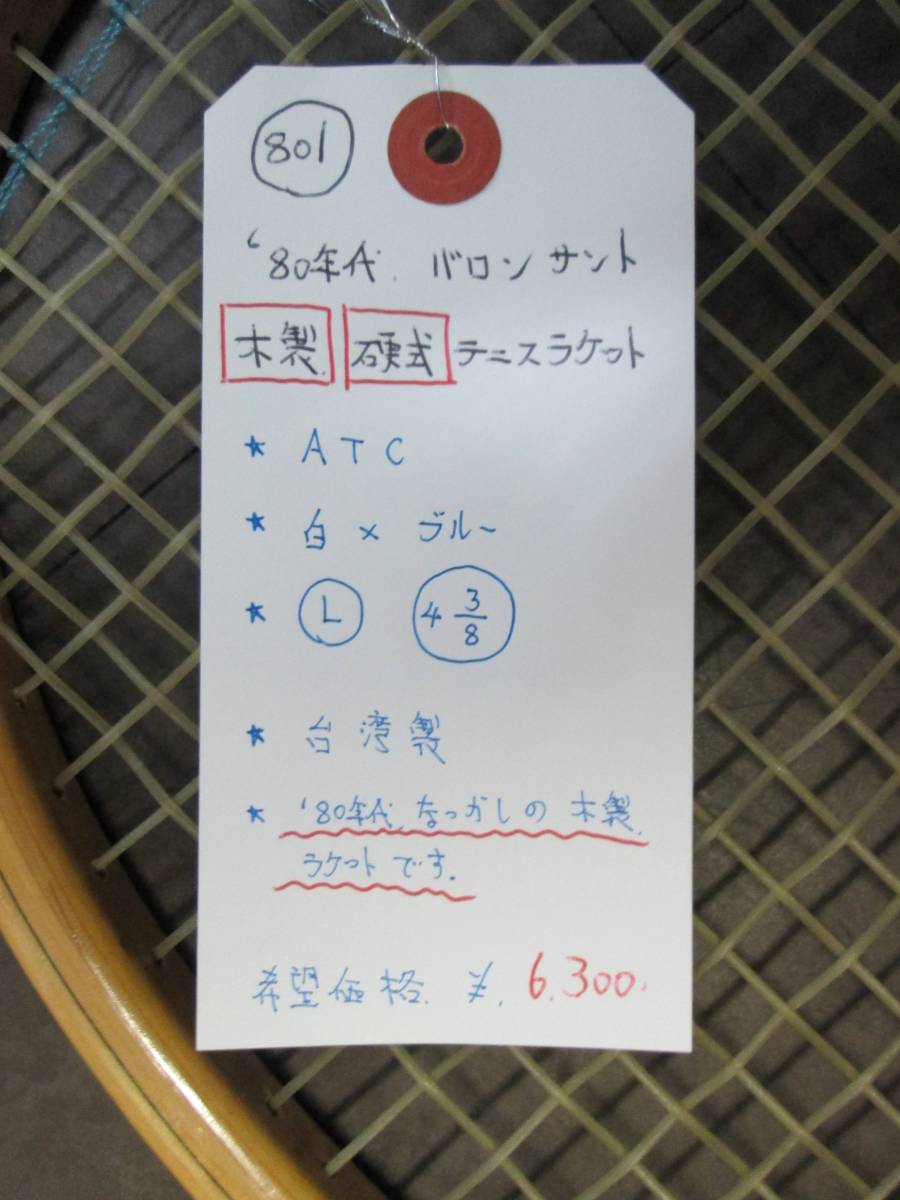 801
'80年代. バロン サント
木製. 硬式 テニスラケット
★ ATC
★ 白 × ブルー
★ L 4 3/8
★ 台湾製
★ '80年代, なつかしの 木製.
ラケットです.
希望価格. ¥. 6.300.